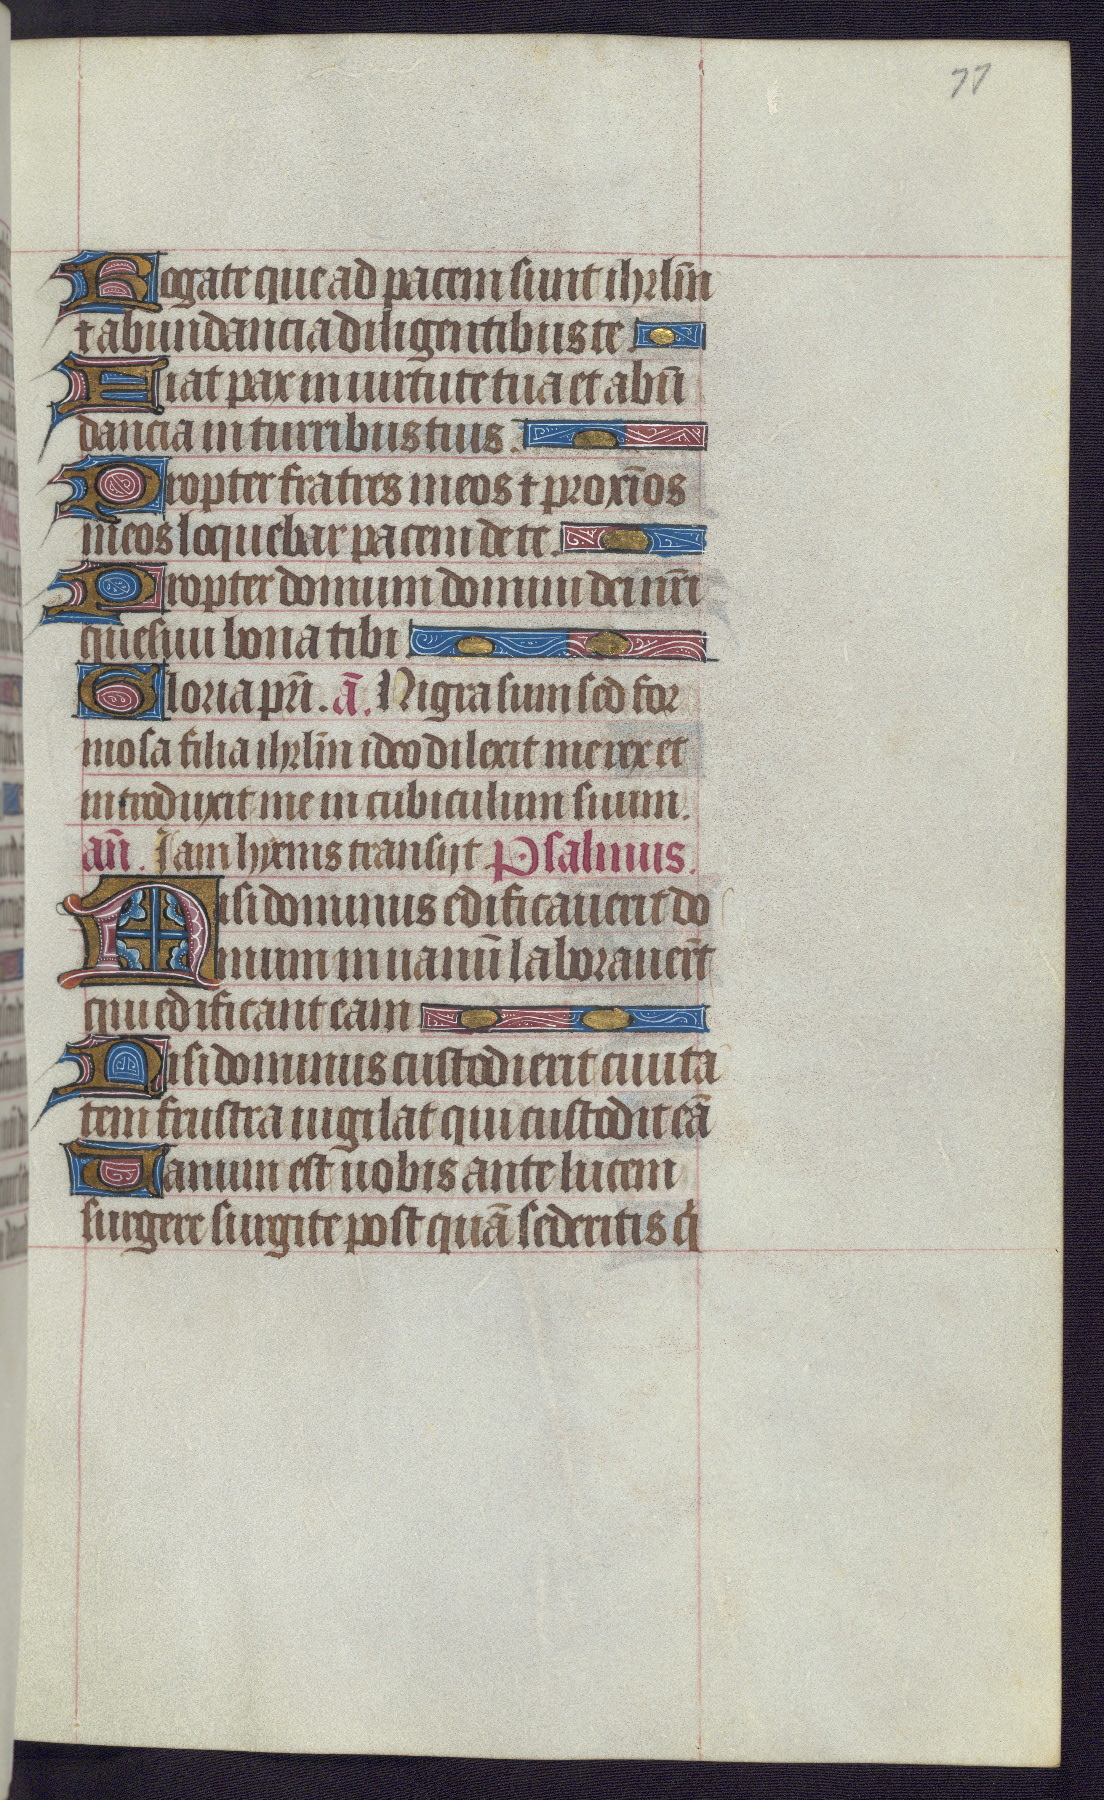 77
Rogate que ad pacem sunt ihrlm̄
⁊ abundancia diligentibus te
Fiat pax in uirtute tua et abū
dancia in turribus tuis.
Propter fratres meos ⁊ proxīos
meos loquebar pacem de te.
Propter domum domini dei nr̄i
quesiui bona tibi
Gloria pr̄i. ā. Nigra sum sed for
mosa filia ihrlm̄ ideo dilexit me rex et
introduxit me in cubiculum suum.
añ. Iam hyems transijt Psalmus.
Nisi dominus edificauerit do
mum in uanū laborauer̄t
qui edificant eam
Nisi dominus custodierit ciuita
tem frustra uigilat qui custodit eā
Uanum est uobis ante lucem
surgere surgite post quā sederitis q̄